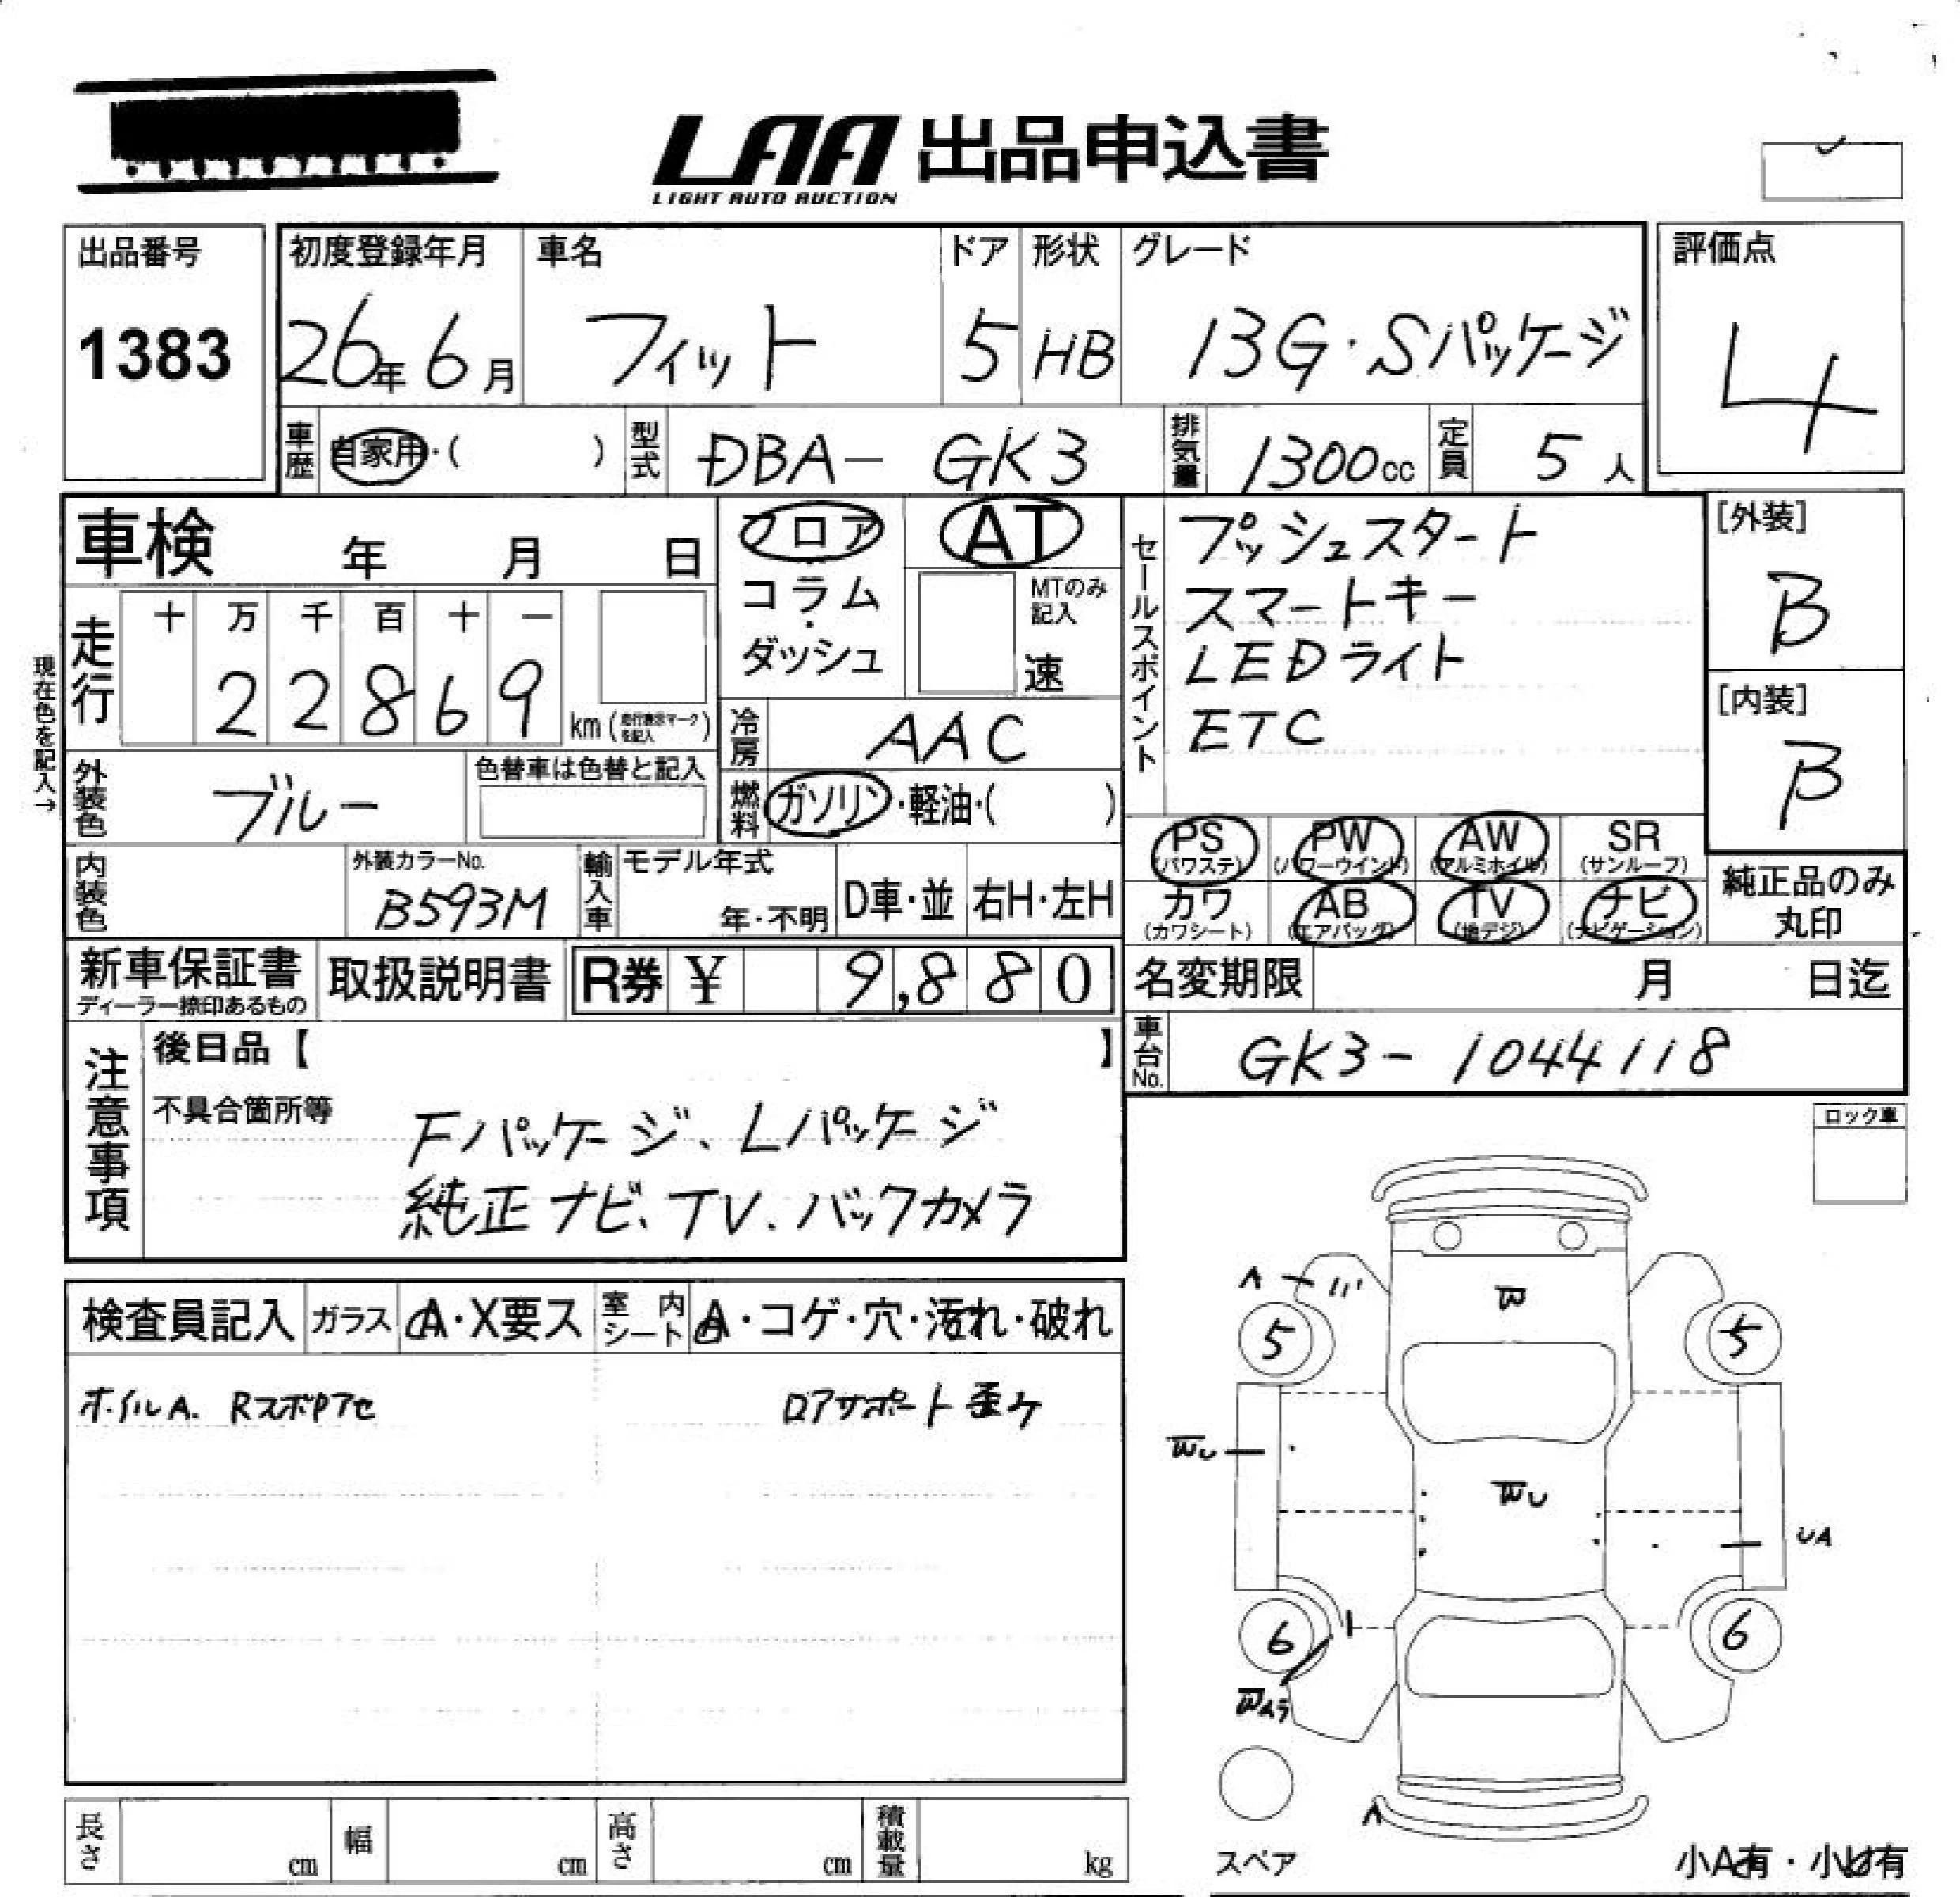 LAA 出品申込書
LIGHT AUTO AUCTION
出品番号
1383
初度登録年月 車名 ドア 形状 グレード
26年 6月 フィット 5 HB 13G・Sパッケージ
評価点
4
車歴 自家用・( ) 型式 DBA- GK3 排気量 1300cc 定員 5人
車検 年 月 日
フロア
コラム・
ダッシュ
AT
MTのみ
記入
速
セールスポイント
プッシュスタート
スマートキー
LEDライト
ETC
[外装]
B
[内装]
B
現在色を記入→
走行
十 万 千 百 十 一
2 2 8 6 9 km (走行表示マークを記入)
冷房 AAC
外装色 ブルー
色替車は色替と記入
燃料 ガソリン・軽油・( )
PS (パワステ) PW (パワーウインド) AW (アルミホイル) SR (サンルーフ)
カワ (カワシート) AB (エアバッグ) TV (地デジ) ナビ (ナビゲーション)
純正品のみ
丸印
内装色
外装カラーNo.
B593M
輸入車
モデル年式
年・不明
D車・並 右H・左H
新車保証書
ディーラー捺印あるもの
取扱説明書
R券 ¥ 9,880
名変期限 月 日迄
車台No. GK3- 1044118
注意事項
後日品【 】
不具合箇所等
Fパッケージ、Lパッケージ
純正ナビ、TV、バックカメラ
ロック車
検査員記入 ガラス A・X要ス 室内シート A・コゲ・穴・汚れ・破れ
ホイルA. RスポIアセ
ロアサポート歪ケ
A
W
5
5
WU
WU
UA
6
6
Wムラ
A
スペア
小A有・小U有
長さ cm 幅 cm 高さ cm 積載量 kg